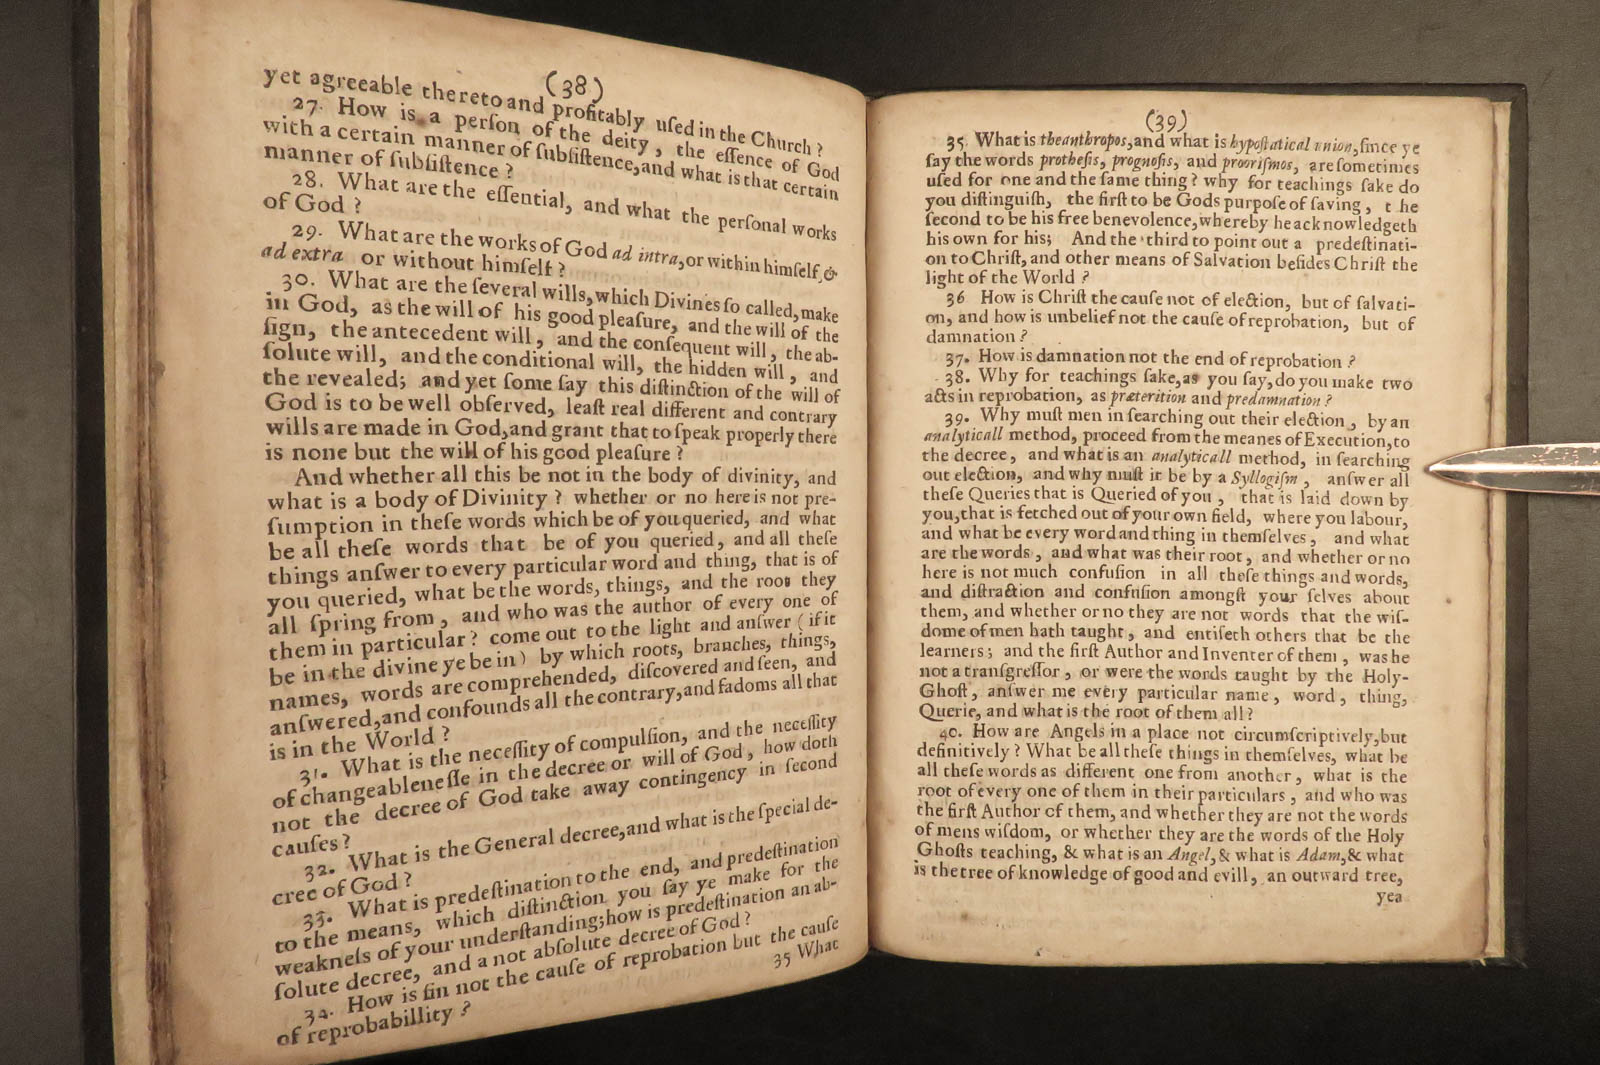 (38)
yet agreeable thereto and profitably uſed in the Church?
27. How is a perſon of the deity, the eſſence of God
with a certain manner of ſubſiſtence, and what is that certain
manner of ſubſiſtence?
28. What are the eſſential, and what the perſonal works
of God?
29. What are the works of God ad intra, or within himſelf, &
ad extra or without himſelf?
30. What are the ſeveral wills, which Divines ſo called, make
in God, as the will of his good pleaſure, and the will of the
ſign, the antecedent will, and the conſequent will, the ab-
ſolute will, and the conditional will, the hidden will, and
the revealed; and yet ſome ſay this diſtinction of the will of
God is to be well obſerved, leaſt real different and contrary
wills are made in God, and grant that to ſpeak properly there
is none but the will of his good pleaſure?
And whether all this be not in the body of divinity, and
what is a body of Divinity? whether or no here is not pre-
ſumption in theſe words which be of you queried, and what
be all theſe words that be of you queried, and all theſe
things anſwer to every particular word and thing, that is of
you queried, what be the words, things, and the root they
all ſpring from, and who was the author of every one of
them in particular? come out to the light and anſwer (if it
be in the divine ye be in) by which roots, branches, things,
names, words are comprehended, diſcovered and ſeen, and
anſwered, and confounds all the contrary, and fadoms all that
is in the World?
31. What is the neceſſity of compulſion, and the neceſſity
of changeableneſſe in the decree or will of God, how doth
not the decree of God take away contingency in ſecond
cauſes?
32. What is the General decree, and what is the ſpecial de-
cree of God?
33. What is predeſtination to the end, and predeſtination
to the means, which diſtinction you ſay ye make for the
weakneſs of your underſtanding; how is predeſtination an ab-
ſolute decree, and a not abſolute decree of God?
34. How is ſin not the cauſe of reprobation but the cauſe
of reprobabillity?
35 What
(39)
35. What is theanthropos, and what is hypoſtatical union, ſince ye
ſay the words protheſis, prognoſis, and prooriſmos, are ſometimes
uſed for one and the ſame thing? why for teachings ſake do
you diſtinguiſh, the firſt to be Gods purpoſe of ſaving, the
ſecond to be his free benevolence, whereby he acknowledgeth
his own for his; And the third to point out a predeſtinati-
on to Chriſt, and other means of Salvation beſides Chriſt the
light of the World?
36 How is Chriſt the cauſe not of election, but of ſalvati-
on, and how is unbelief not the cauſe of reprobation, but of
damnation?
37. How is damnation not the end of reprobation?
38. Why for teachings ſake, as you ſay, do you make two
acts in reprobation, as præterition and predamnation?
39. Why muſt men in ſearching out their election, by an
analyticall method, proceed from the meanes of Execution, to
the decree, and what is an analyticall method, in ſearching
out election, and why muſt it be by a Syllogiſm, anſwer all
theſe Queries that is Queried of you, that is laid down by
you, that is fetched out of your own field, where you labour,
and what be every word and thing in themſelves, and what
are the words, and what was their root, and whether or no
here is not much confuſion in all theſe things and words,
and diſtraction and confuſion amongſt your ſelves about
them, and whether or no they are not words that the wiſ-
dome of men hath taught, and entiſeth others that be the
learners; and the firſt Author and Inventer of them, was he
not a tranſgreſſor, or were the words taught by the Holy-
Ghoſt, anſwer me every particular name, word, thing,
Querie, and what is the root of them all?
40. How are Angels in a place not circumſcriptively, but
definitively? What be all theſe things in themſelves, what be
all theſe words as different one from another, what is the
root of every one of them in their particulars, and who was
the firſt Author of them, and whether they are not the words
of mens wiſdom, or whether they are the words of the Holy
Ghoſts teaching, & what is an Angel, & what is Adam, & what
is the tree of knowledge of good and evill, an outward tree,
yea